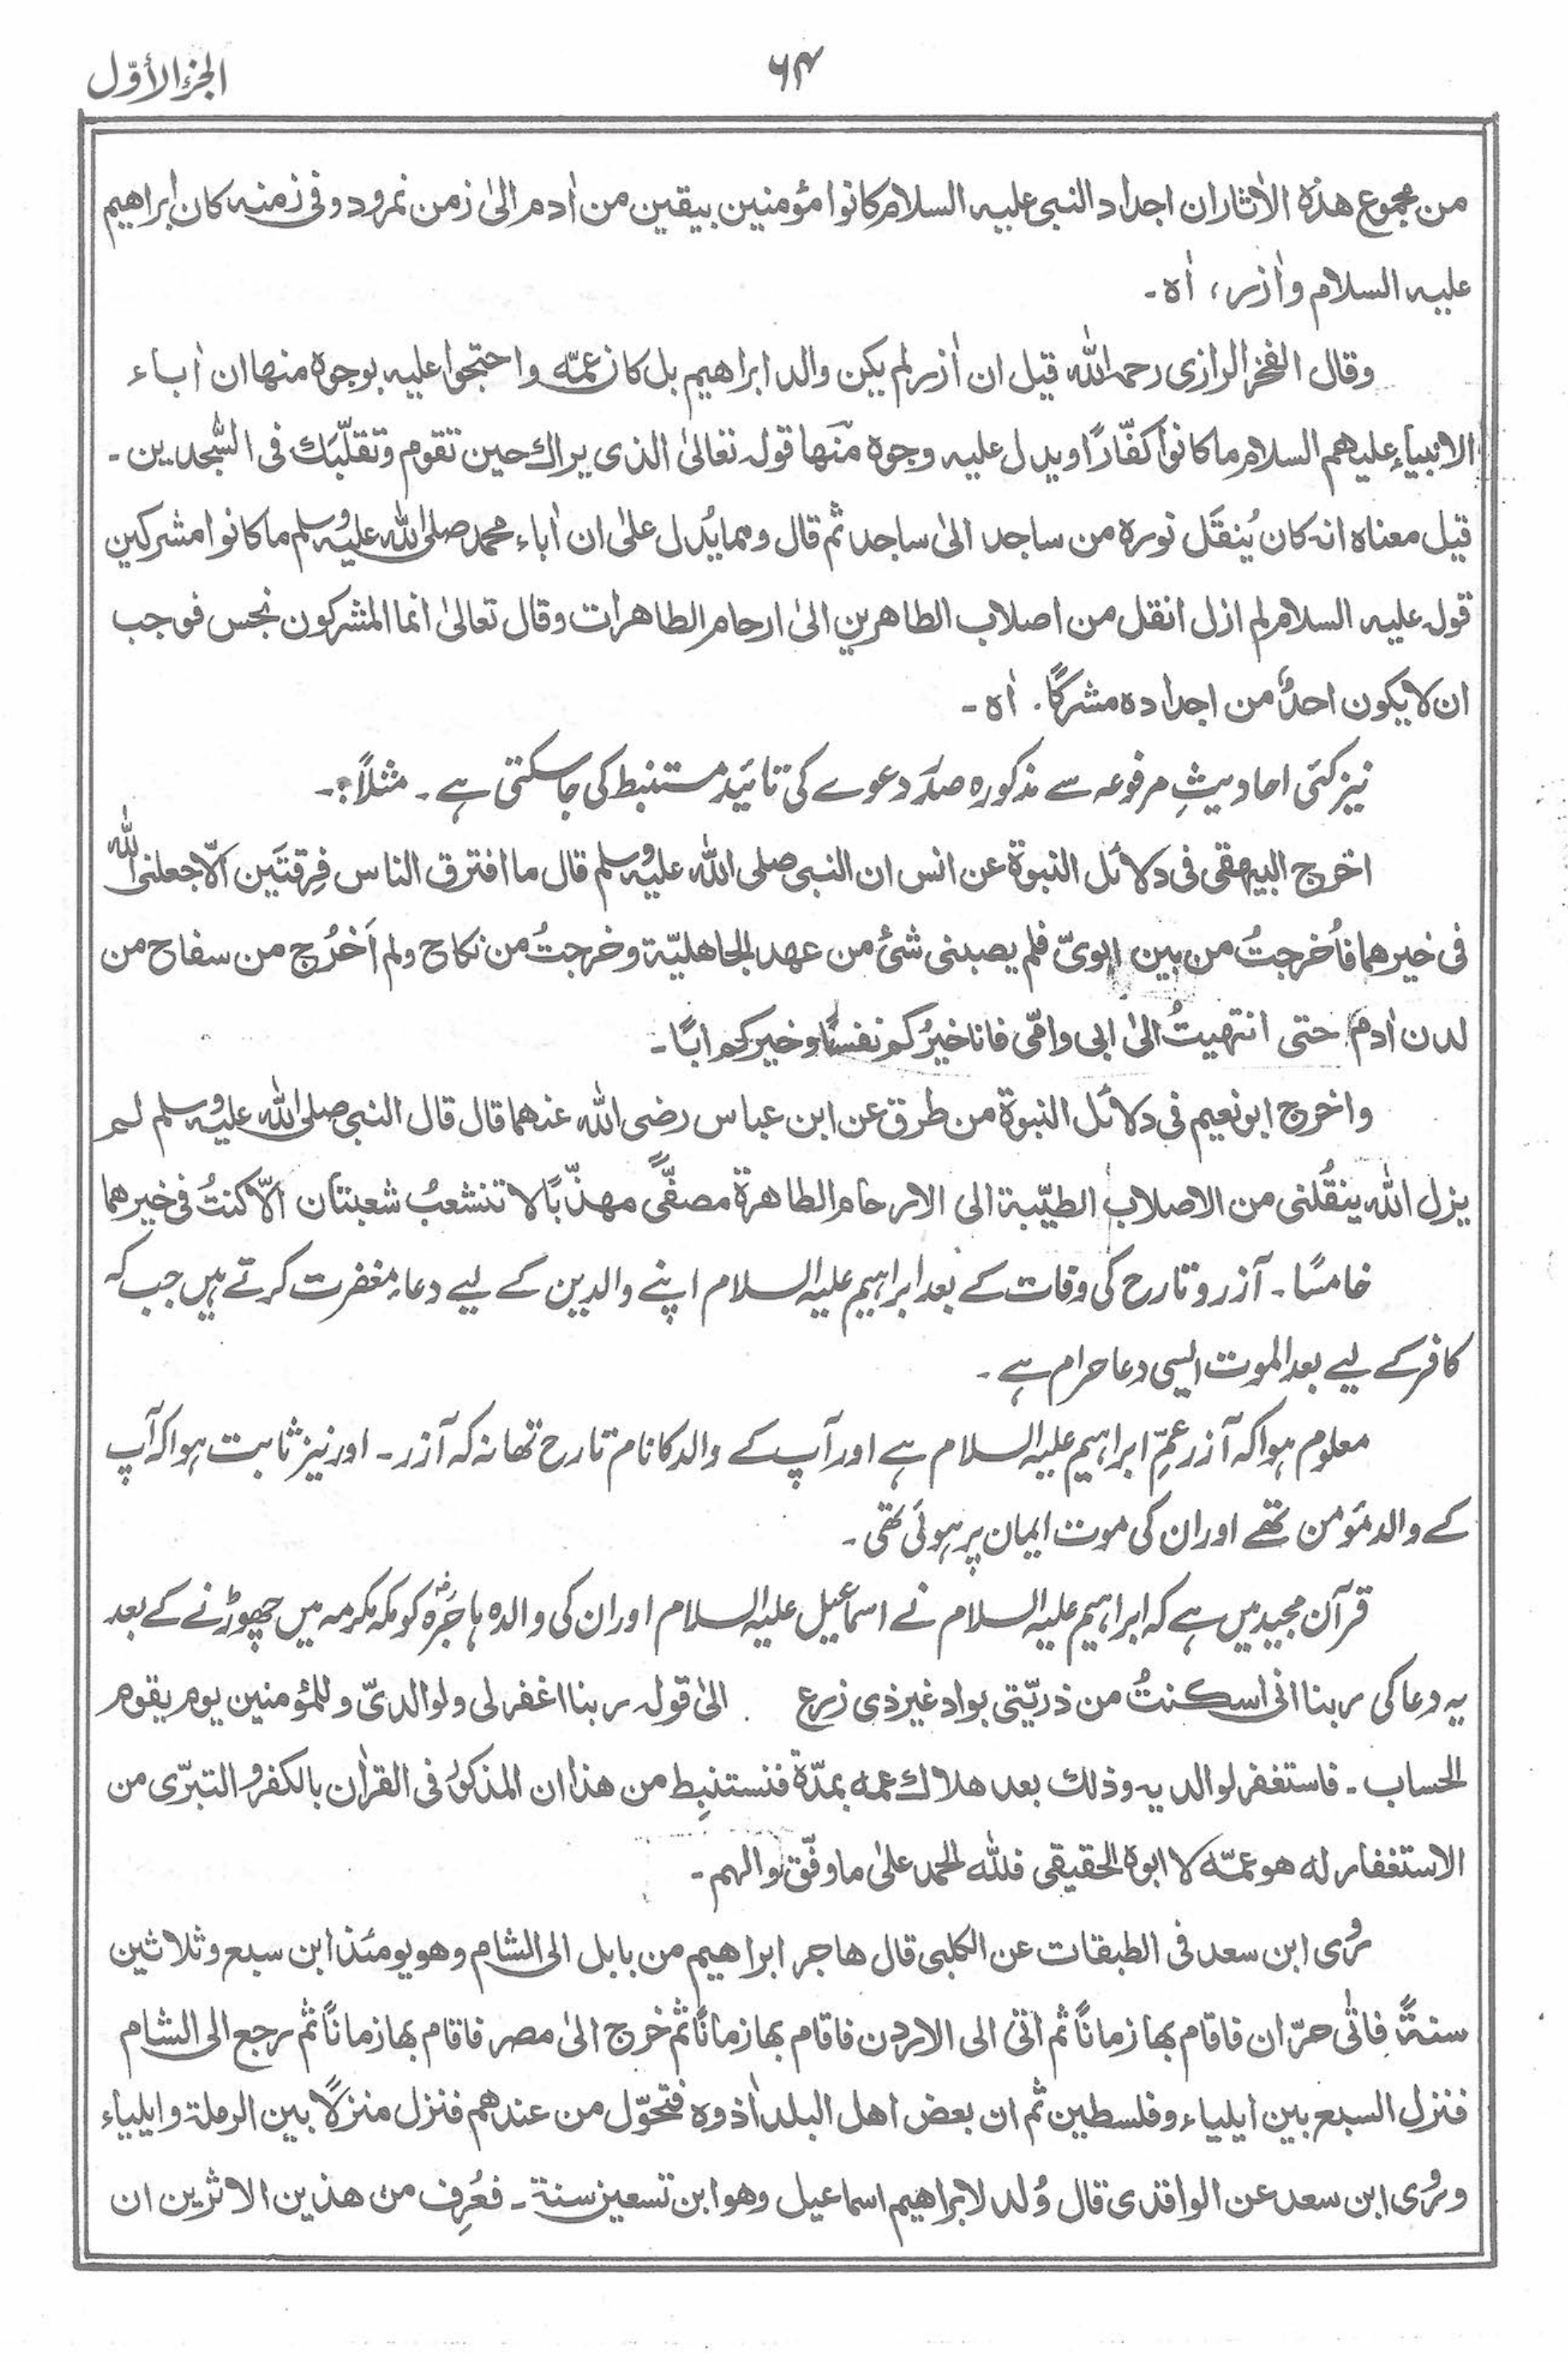 الجزء الأوّل
۶۴
من مجموع هذه الاٰثار ان اجداد النبی علیہ السلام کانوا مؤمنین بیقین من اٰدم الیٰ زمن نمرود وفی زمنہ کان ابراھیم
علیہ السلام واٰزر، اٰہ۔
وقال الفخر الرازی رحمہ اللہ قیل ان اٰزر لم یکن والد ابراھیم بل کان عمّہ واحتجوا علیہ بوجوہ منھا ان اٰباء
الانبیاء علیھم السلام ما کانوا کفّارًا ویدل علیہ وجوہ منھا قولہ تعالیٰ الذی یراك حین تقوم وتقلّبَك فی السّٰجدین۔
قیل معناہ انہ کان یُنقَل نورہ من ساجد الیٰ ساجد ثم قال ومما یُدل علیٰ ان اٰباء محمد صلی اللہ علیہ وسلم ما کانوا مشرکین
قولہ علیہ السلام لم ازل انقل من اصلاب الطاھرین الیٰ ارحام الطاھرات وقال تعالیٰ انما المشرکون نجس فوجب
ان لا یکون احدٌ من اجدادہ مشرکًا۔ اٰہ۔
نیز کئی احادیثِ مرفوعہ سے مذکورہ صدر دعوے کی تائید مستنبط کی جاسکتی ہے۔ مثلاً:۔
اخرج البیھقی فی دلائل النبوة عن انس ان النبی صلی اللہ علیہ وسلم قال ما افترق الناس فِرقتَین الّا جعلنی اللہ
فی خیرھما فاُخرجتُ من بین ابویّ فلم یصبنی شئ من عھد الجاھلیّة وخرجتُ من نکاح ولم اَخرُج من سفاح من
لدن اٰدم حتی انتھیتُ الیٰ ابی وامّی فانا خیرُکم نفسًا وخیرکم ابًا۔
واخرج ابونعیم فی دلائل النبوة من طرق عن ابن عباس رضی اللہ عنھما قال قال النبی صلی اللہ علیہ وسلم لم
یزل اللہ ینقُلنی من الاصلاب الطیّبة الی الارحام الطاھرة مصفًّی مھذّبًا لا تنشعبُ شعبتان الّا کنتُ فی خیرھما
خامسًا۔ آزر و تارح کی وفات کے بعد ابراہیم علیہ السلام اپنے والدین کے لیے دعاء مغفرت کرتے ہیں جب کہ
کافر کے لیے بعد الموت ایسی دعا حرام ہے۔
معلوم ہوا کہ آزر عمِّ ابراہیم علیہ السلام ہے اور آپ کے والد کا نام تارح تھا نہ کہ آزر۔ اور نیز ثابت ہوا کہ آپ
کے والد مؤمن تھے اور ان کی موت ایمان پر ہوئی تھی۔
قرآن مجید میں ہے کہ ابراہیم علیہ السلام نے اسماعیل علیہ السلام اور ان کی والدہ ہاجَرہؓ کو مکہ مکرمہ میں چھوڑنے کے بعد
یہ دعا کی ربنا انی اسکنتُ من ذریّتی بواد غیر ذی زرع . الیٰ قولہ ربنا اغفر لی ولوالدیّ وللمؤمنین یوم یقوم
الحساب۔ فاستغفر لوالدیہ وذلك بعد ھلاك عمہ بمدّة فنستنبِط من ھذا ان المذکور فی القراٰن بالکفر والتبرّی من
الاستغفار لہ ھو عمّہ لا ابوہ الحقیقی فللّٰہ الحمد علیٰ ما وفّق والھم۔
ورُوی ابن سعد فی الطبقات عن الکلبی قال ھاجر ابراھیم من بابل الی الشام وھو یومئذ ابن سبع وثلاثین
سنةً فاتٰی حرّان فاقام بھا زمانًا ثم اتیٰ الی الاردن فاقام بھا زمانًا ثم خرج الیٰ مصر فاقام بھا زمانًا ثم رجع الی الشام
فنزل السبع بین ایلیاء وفلسطین ثم ان بعض اھل البلد اٰذوہ فتحوّل من عندھم فنزل منزلًا بین الرملة وایلیاء
ورُوی ابن سعد عن الواقدی قال وُلد لابراھیم اسماعیل وھو ابن تسعین سنة۔ فعُرِف من ھذین الاثرین ان